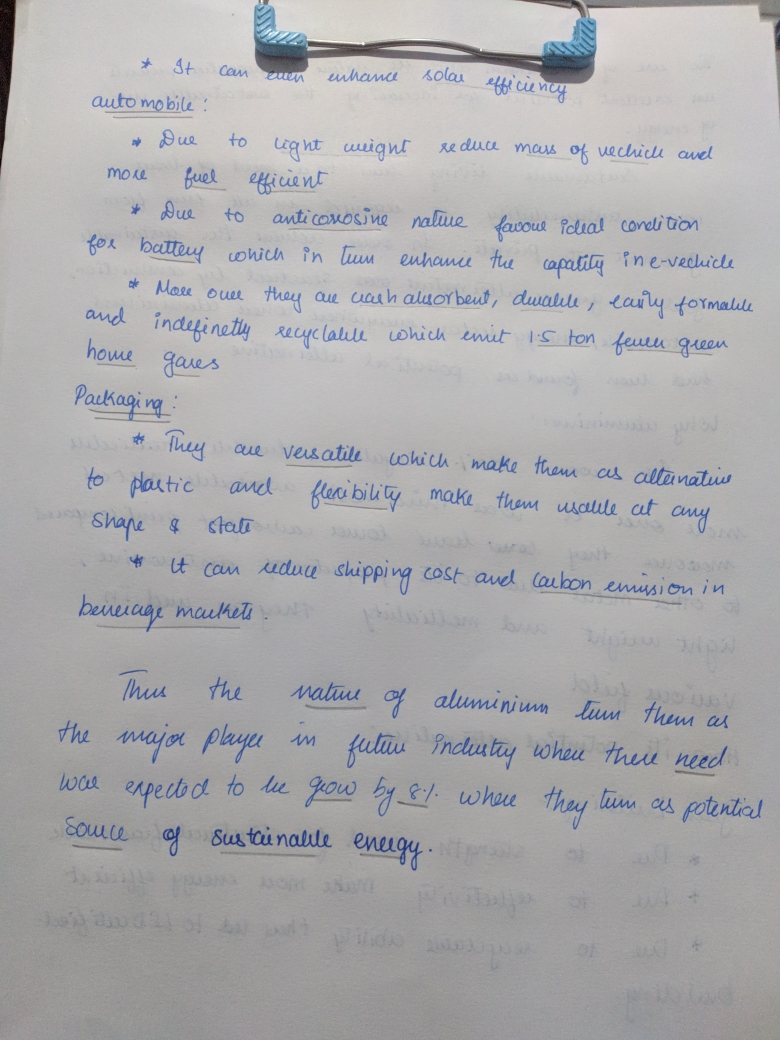 * It can even enhance solar efficiency
automobile :
* Due to light weight reduce mass of vechicle and
more fuel efficient
* Due to anticorosine nature favour ideal condition
for battery which in turn enhance the capatity in e-vechicle
* More over they are crash absorbent, durable, easily formable
and indefinetly recyclable which emit 1.5 ton fewer green
home gases
Packaging :
* They are versatile which make them as alternative
to plastic and flexibility make them usable at any
shape & state
* It can reduce shipping cost and carbon emission in
beverage markets.
Thus the nature of aluminium turn them as
the major player in future industry where there need
was expected to be grow by 8% where they turn as potential
source of sustainable energy.